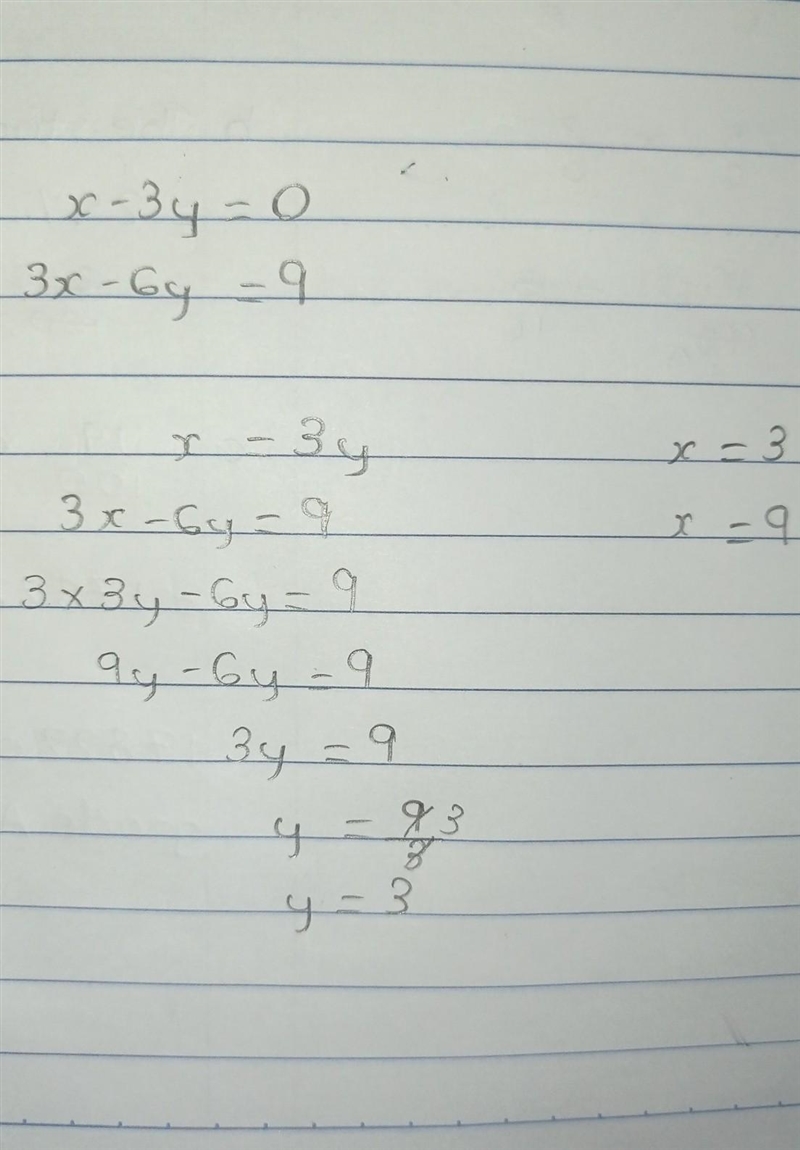 x - 3y = 0
3x - 6y = 9
x = 3y
3x - 6y = 9
3 × 3y - 6y = 9
9y - 6y = 9
3y = 9
y = 9/3 3
y = 3
x = 3
x = 9